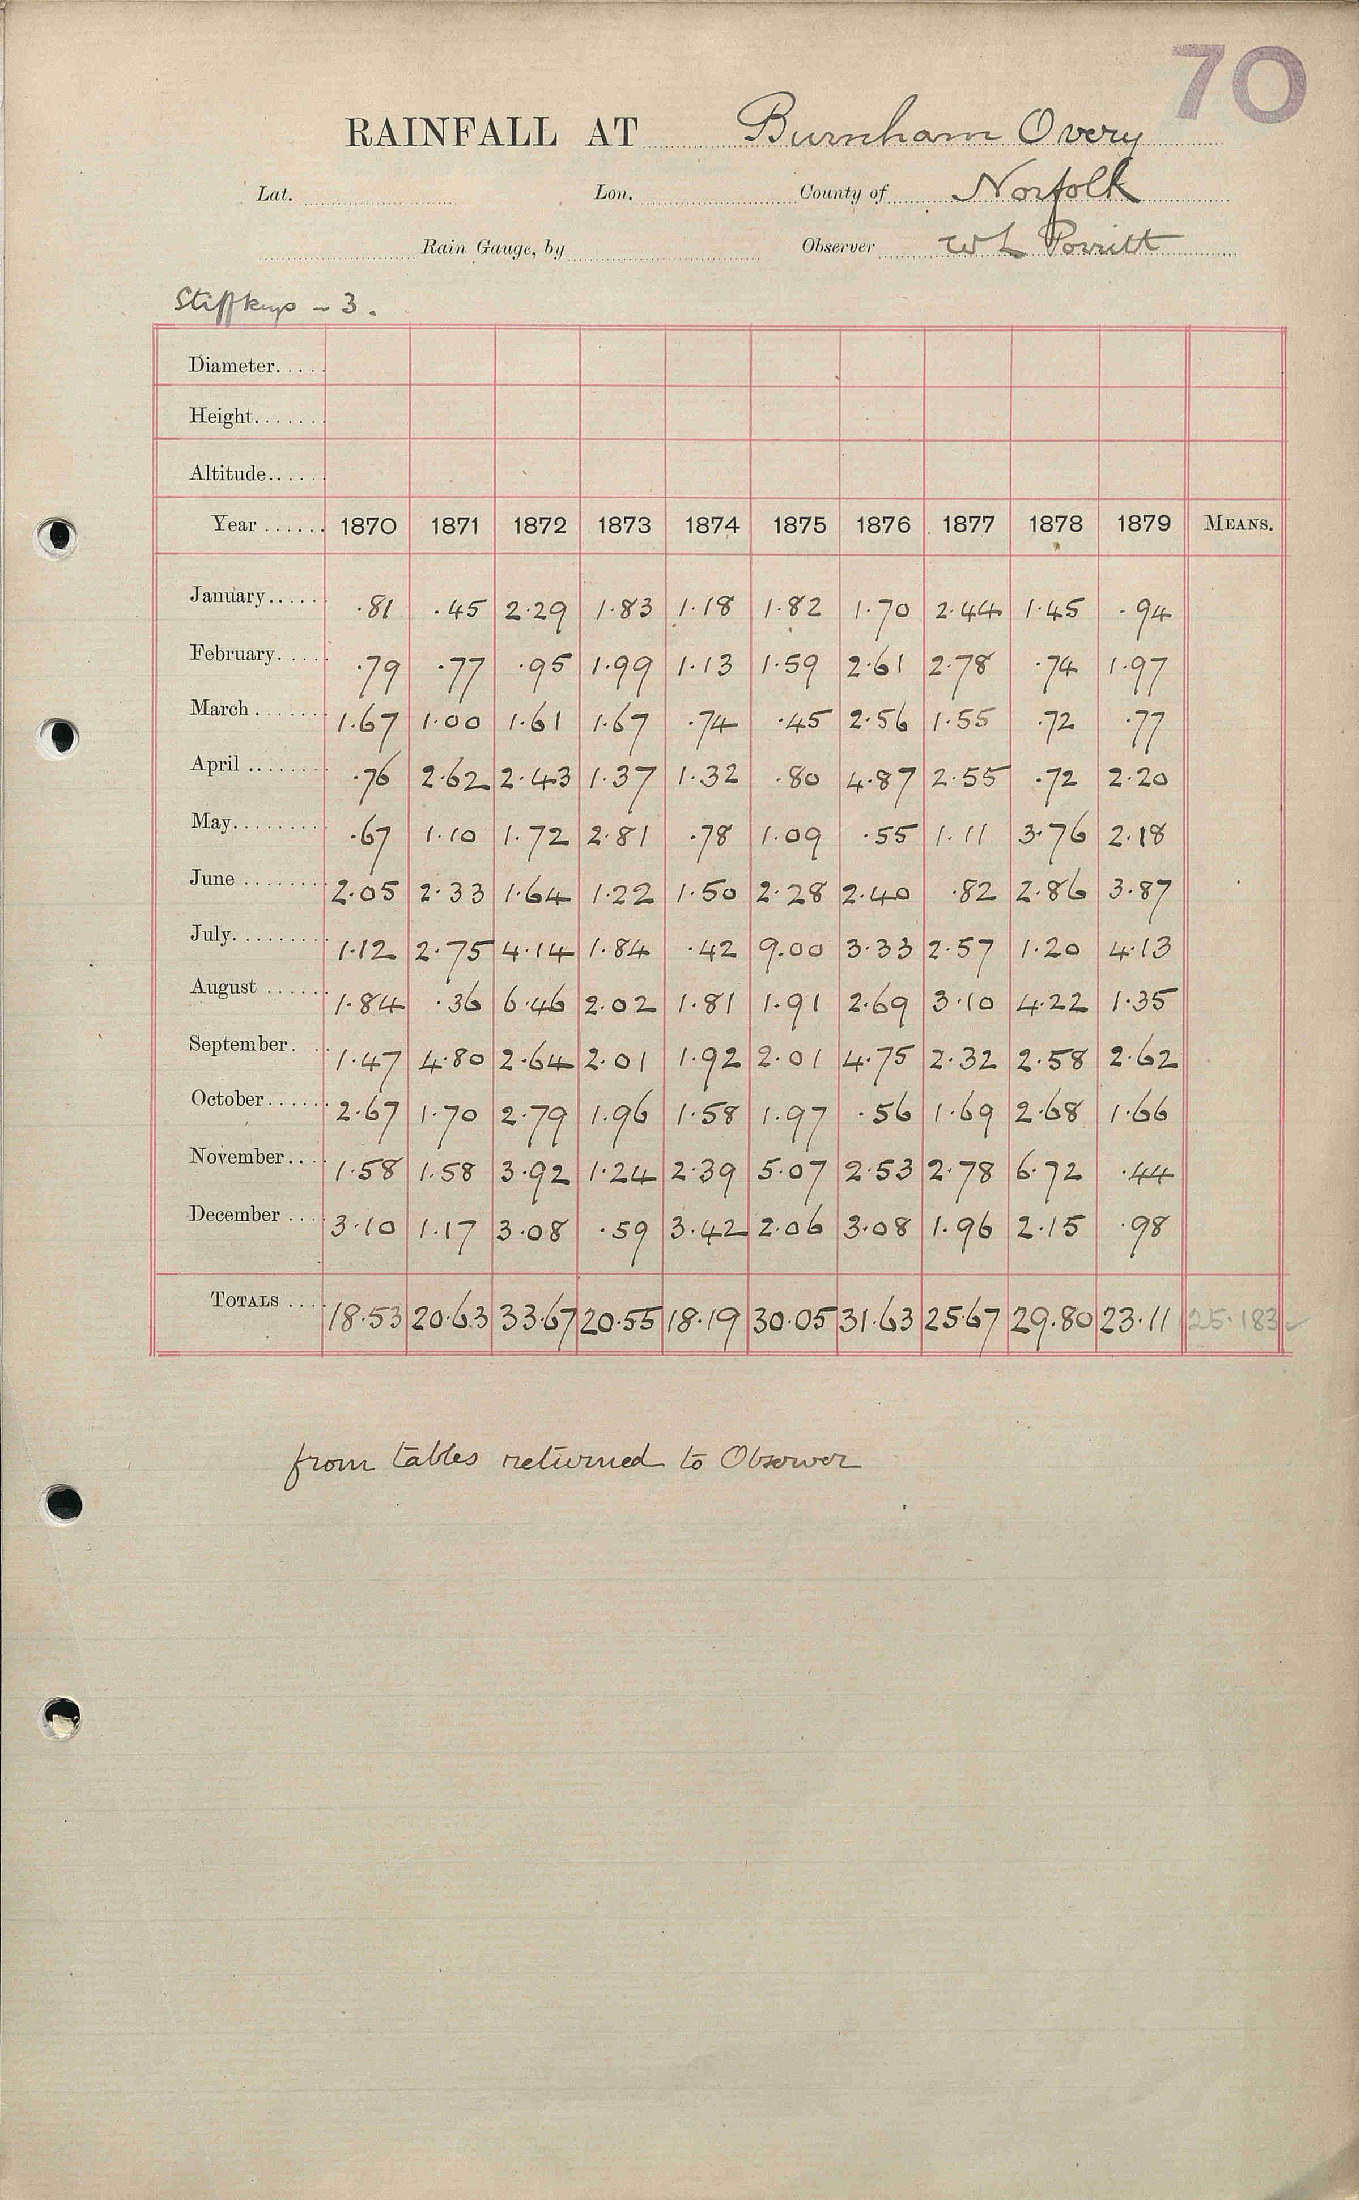 70
RAINFALL AT Burnham Overy
Lat. Lon. County of Norfolk
Rain Gauge, by Observer W L Porritt
Stiffkey - 3.
Diameter
Height
Altitude
Year 1870 1871 1872 1873 1874 1875 1876 1877 1878 1879 MEANS.
January .81 .45 2.29 1.83 1.18 1.82 1.70 2.44 1.45 .94
February .79 .77 .95 1.99 1.13 1.59 2.61 2.78 .74 1.97
March 1.67 1.00 1.61 1.67 .74 .45 2.56 1.55 .72 .77
April .76 2.62 2.43 1.37 1.32 .80 4.87 2.55 .72 2.20
May .67 1.10 1.72 2.81 .78 1.09 .55 1.11 3.76 2.18
June 2.05 2.33 1.64 1.22 1.50 2.28 2.40 .82 2.86 3.87
July 1.12 2.75 4.14 1.84 .42 9.00 3.33 2.57 1.20 4.13
August 1.84 .36 6.46 2.02 1.81 1.91 2.69 3.10 4.22 1.35
September 1.47 4.80 2.64 2.01 1.92 2.01 4.75 2.32 2.58 2.62
October 2.67 1.70 2.79 1.96 1.58 1.97 .56 1.69 2.68 1.66
November 1.58 1.58 3.92 1.24 2.39 5.07 2.53 2.78 6.72 .44
December 3.10 1.17 3.08 .59 3.42 2.06 3.08 1.96 2.15 .98
TOTALS 18.53 20.63 33.67 20.55 18.19 30.05 31.63 25.67 29.80 23.11 25.183
from tables returned to Observer